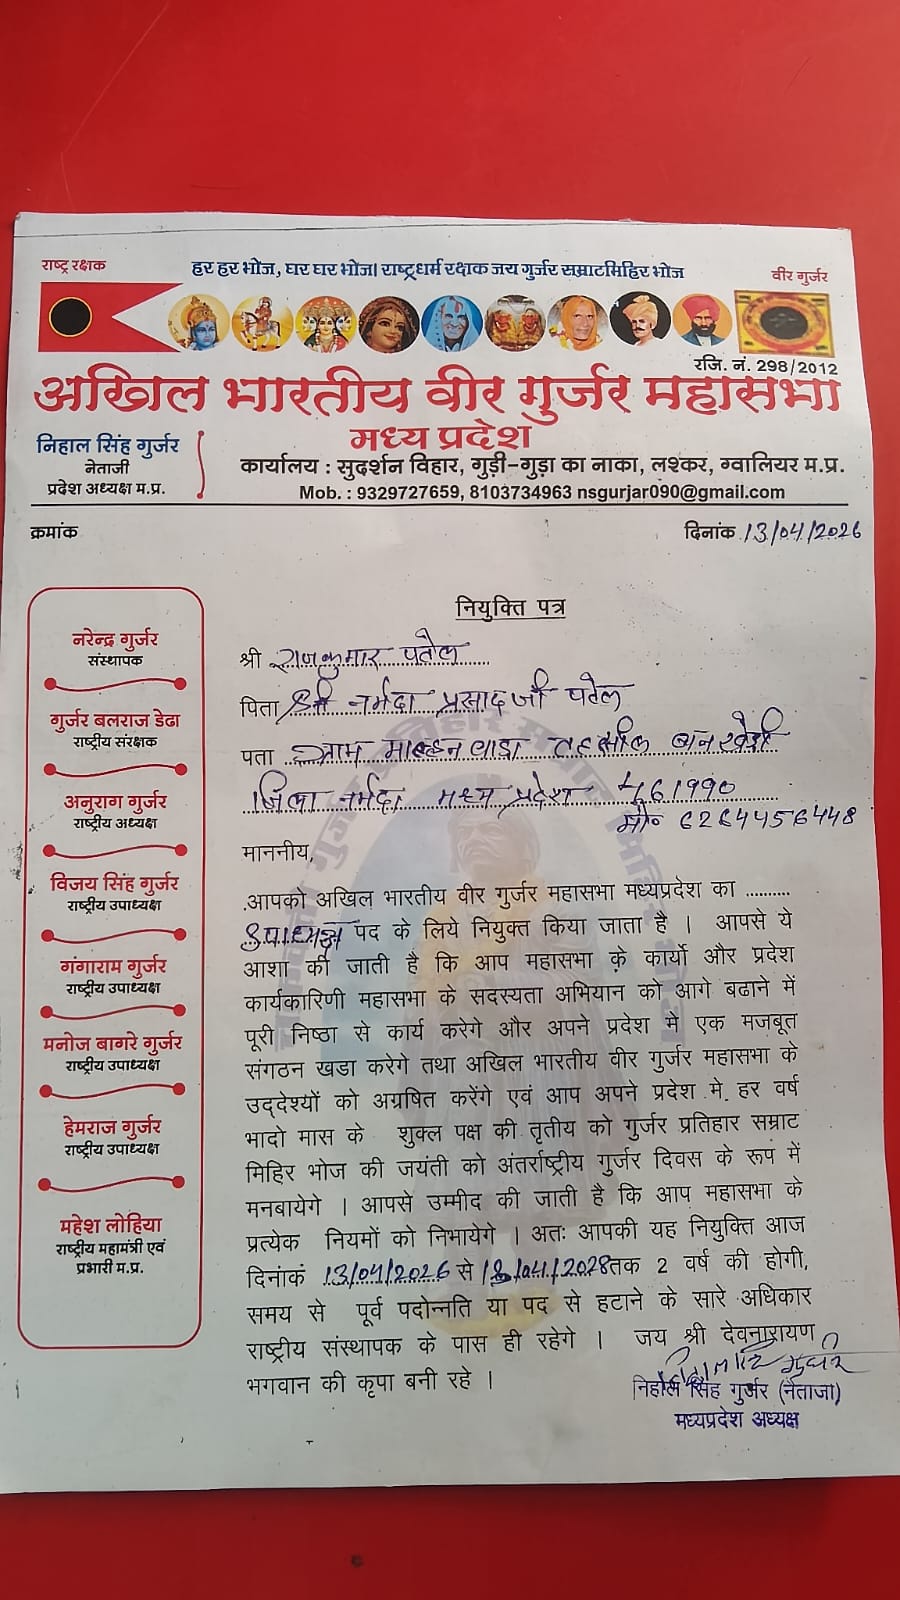 राष्ट्र रक्षक
हर हर भोज, घर घर भोज। राष्ट्रधर्म रक्षक जय गुर्जर सम्राटमिहिर भोज
वीर गुर्जर
रजि. नं. 298/2012
अखिल भारतीय वीर गुर्जर महासभा
मध्य प्रदेश
निहाल सिंह गुर्जर
नेताजी
प्रदेश अध्यक्ष म.प्र.
कार्यालय : सुदर्शन विहार, गुड़ी-गुड़ा का नाका, लश्कर, ग्वालियर म.प्र.
Mob. : 9329727659, 8103734963 nsgurjar090@gmail.com
क्रमांक
दिनांक 13/04/2026
नरेन्द्र गुर्जर
संस्थापक
गुर्जर बलराज डेढा
राष्ट्रीय संरक्षक
अनुराग गुर्जर
राष्ट्रीय अध्यक्ष
विजय सिंह गुर्जर
राष्ट्रीय उपाध्यक्ष
गंगाराम गुर्जर
राष्ट्रीय उपाध्यक्ष
मनोज बागरे गुर्जर
राष्ट्रीय उपाध्यक्ष
हेमराज गुर्जर
राष्ट्रीय उपाध्यक्ष
महेश लोहिया
राष्ट्रीय महामंत्री एवं
प्रभारी म.प्र.
नियुक्ति पत्र
श्री राजकुमार पटेल
पिता श्री नर्मदा प्रसाद जी पटेल
पता ग्राम माल्हनवाडा तहसील बनखेडी
जिला नर्मदा मध्य प्रदेश 461990
मो० 6264456448
माननीय,
आपको अखिल भारतीय वीर गुर्जर महासभा मध्यप्रदेश का ..........
उपाध्यक्ष पद के लिये नियुक्त किया जाता है । आपसे ये
आशा की जाती है कि आप महासभा के कार्यो और प्रदेश
कार्यकारिणी महासभा के सदस्यता अभियान को आगे बढाने में
पूरी निष्ठा से कार्य करेगे और अपने प्रदेश मे एक मजबूत
संगठन खडा करेगे तथा अखिल भारतीय वीर गुर्जर महासभा के
उद्देश्यों को अग्रषित करेंगे एवं आप अपने प्रदेश मे हर वर्ष
भादो मास के शुक्ल पक्ष की तृतीय को गुर्जर प्रतिहार सम्राट
मिहिर भोज की जयंती को अंतर्राष्ट्रीय गुर्जर दिवस के रूप में
मनबायेगे । आपसे उम्मीद की जाती है कि आप महासभा के
प्रत्येक नियमों को निभायेगे । अतः आपकी यह नियुक्ति आज
दिनांकं 13/04/2026 से 13/04/2028 तक 2 वर्ष की होगी,
समय से पूर्व पदोन्नति या पद से हटाने के सारे अधिकार
राष्ट्रीय संस्थापक के पास ही रहेगे । जय श्री देवनारायण
भगवान की कृपा बनी रहे ।
निहाल सिंह गुर्जर (नेताजी)
मध्यप्रदेश अध्यक्ष